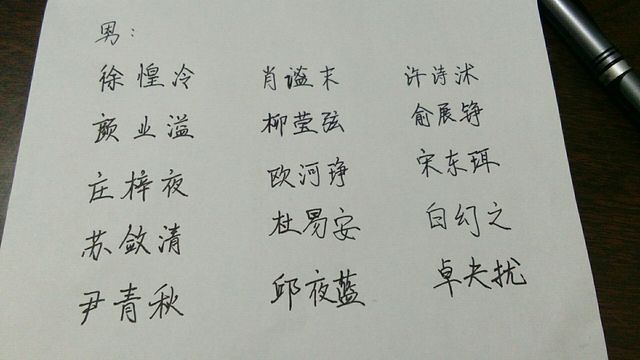 男：
徐惶冷 肖谧末 许诗沭
颜业溢 柳莹弦 俞展铮
庄梓夜 欧河琤 宋东珥
苏敛清 杜易安 白幻之
尹青秋 邱夜蓝 卓夫扰